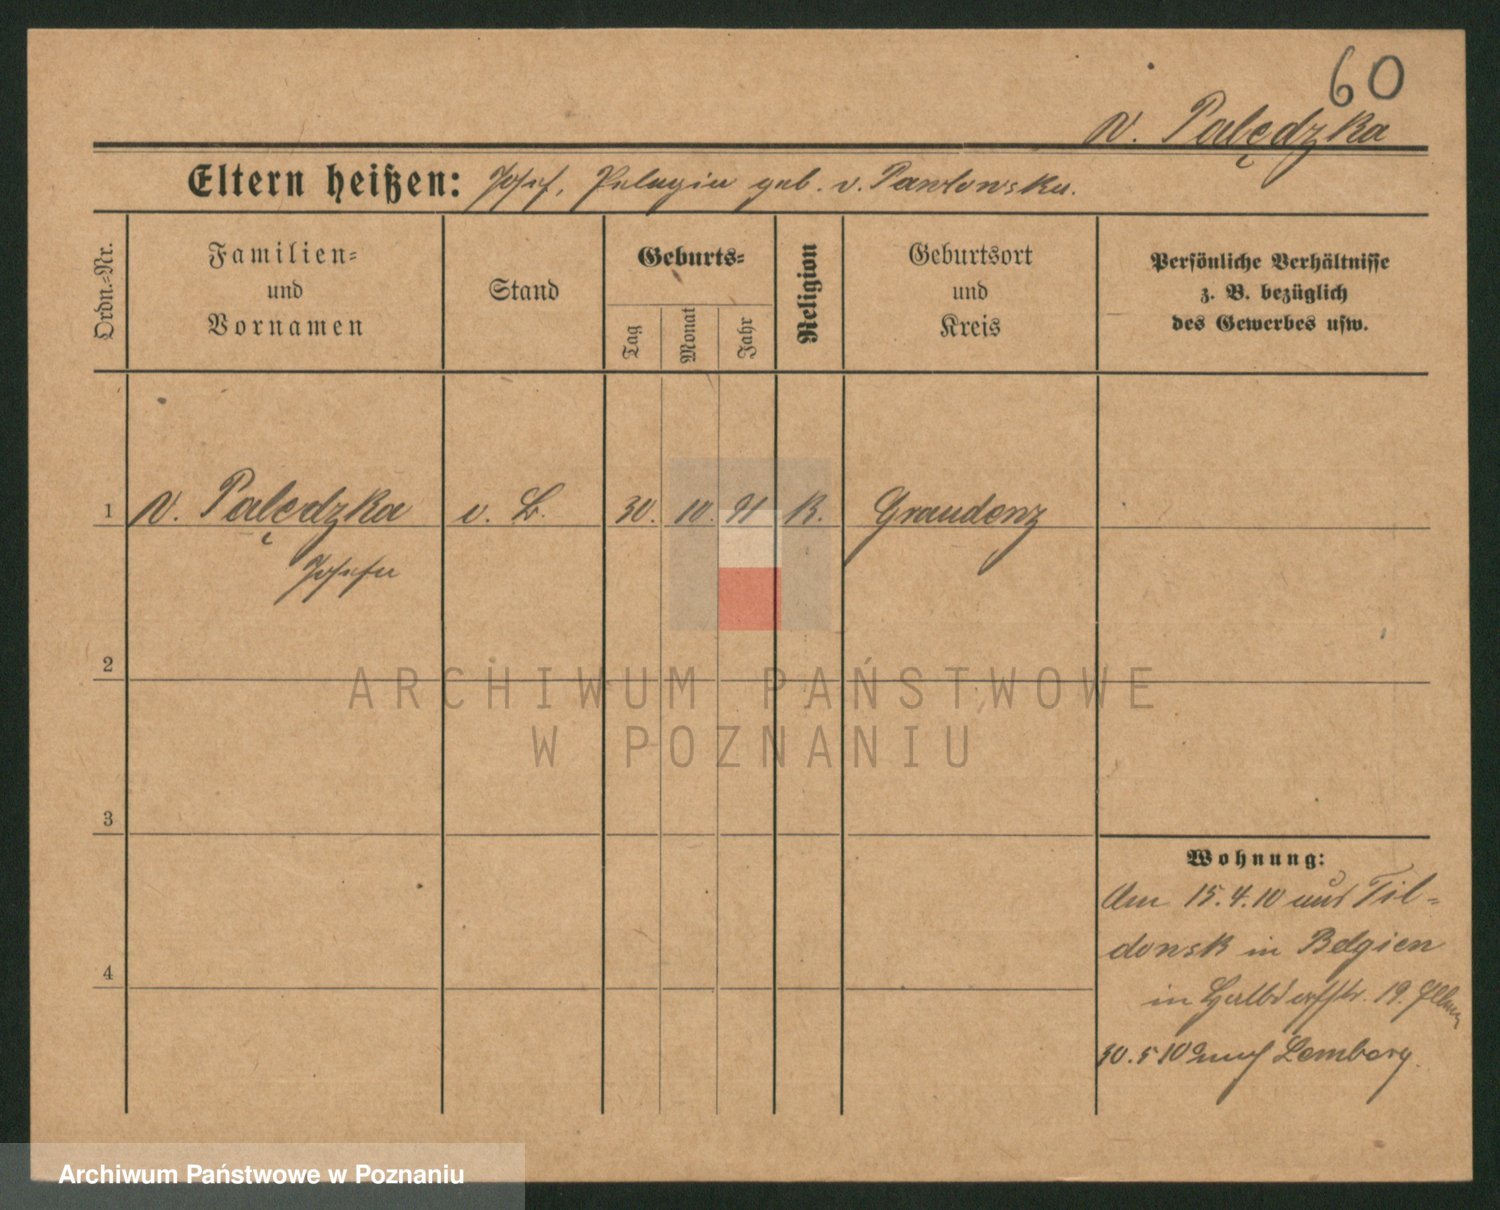 60
v. Palędzka
Eltern heißen: Josef, Pelagia geb. v. Pawłowska.
Ordn.=Nr.
Familien=
und
Vornamen
Stand
Geburts=
Tag
Monat
Jahr
Religion
Geburtsort
und
Kreis
Persönliche Verhältnisse
z. B. bezüglich
des Gewerbes usw.
1 v. Palędzka 30. 10. 91 K. Graudenz
Josefa
2
3
4
Wohnung:
Am 15.4.10 aus Til=
donsk in Belgien
in Halbdorfstr. 19.
30.5 10 nach Lemberg.
ARCHIWUM PAŃSTWOWE
W POZNANIU
Archiwum Państwowe w Poznaniu